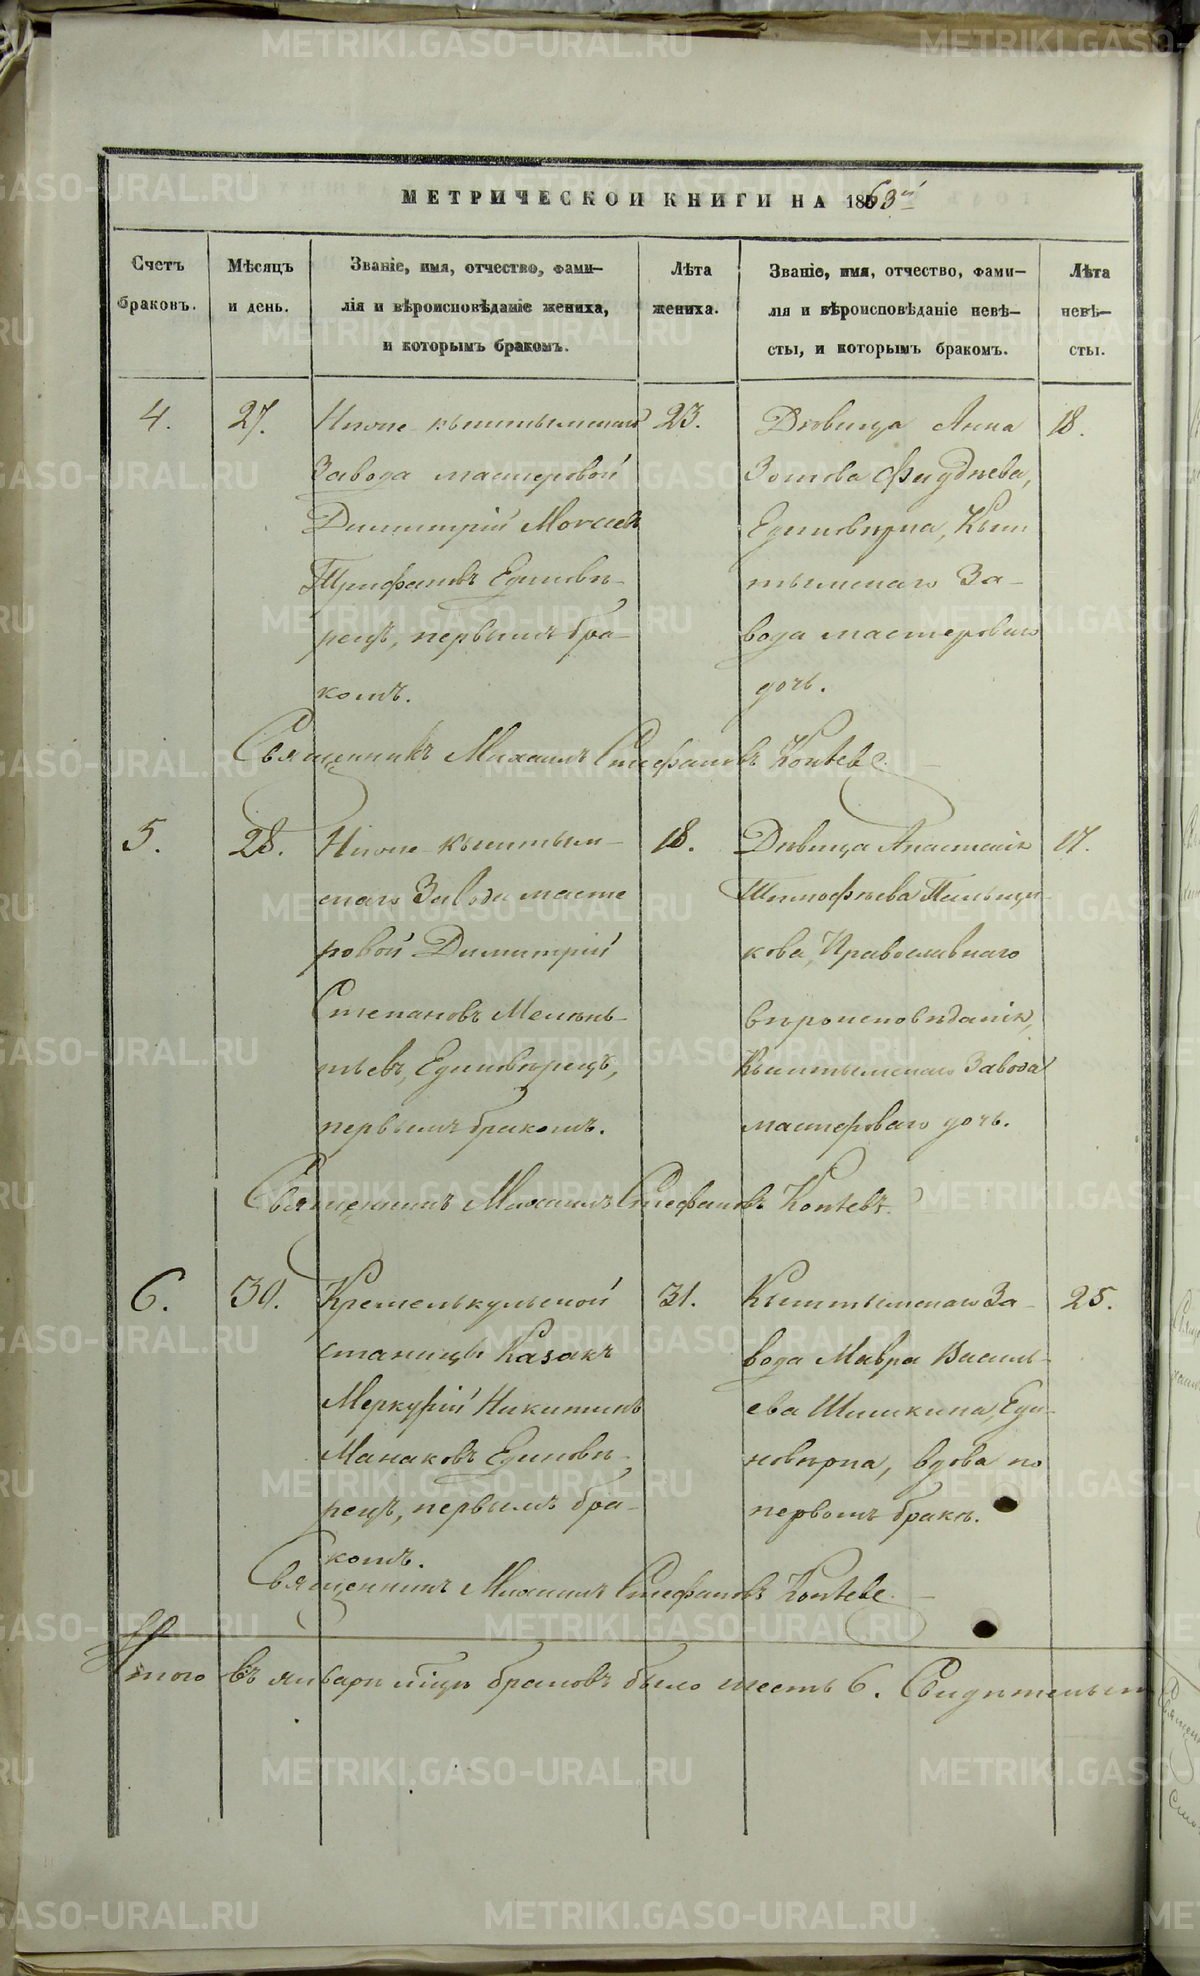 МЕТРИЧЕСКОЙ КНИГИ НА 1863й
Счетъ браковъ.
Мѣсяцъ и день.
Званіе, имя, отчество, фами-
лія и вѣроисповѣданіе жениха,
и которымъ бракомъ.
Лѣта жениха.
Званіе, имя, отчество, фами-
лія и вѣроисповѣданіе невѣ-
сты, и которымъ бракомъ.
Лѣта невѣ-
сты.
4.
27.
Нижне-кыштымскаго
Завода мастеровой
Димитрій Моисеевъ
Трифановъ Единовѣ-
рецъ, первымъ бра-
комъ.
23.
Дѣвица Анна
Зотова
Единовѣрка, Кыш
тымскаго За-
вода мастероваго
дочь.
18.
Священникъ Михаилъ Стефановъ
5.
28.
Нижне-Кыштым-
скаго Завода масте
ровой Димитрій
Степановъ Мелень-
тьевъ, Единовѣрецъ,
первымъ бракомъ.
18.
Дѣвица Анастасія
Тимофѣева Пильщи-
кова, Православнаго
вѣроисповѣданія,
Кыштымскаго Завода
мастероваго дочь.
17.
Священникъ Михаилъ Стефановъ
6.
30.
Кременькульской
станицы Казакъ
Меркурій Никитинъ
Манаковъ Единовѣ-
рецъ, первымъ бра-
комъ.
31.
Кыштымскаго За-
вода Мавра Василь-
ева Шишкина, Еди-
новѣрка, вдова по
первомъ бракѣ.
25.
Священникъ Михаилъ Стефановъ
Итого въ январѣ мцѣ браковъ было шесть 6.